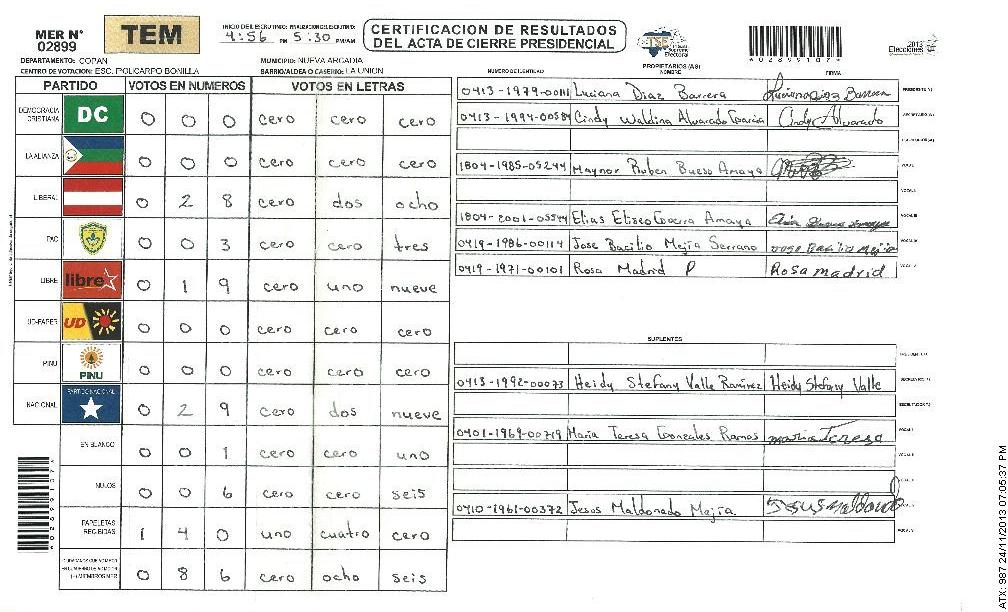 MER N° 02899
TEM
INICIO DEL ESCRUTINIO: FINALIZACION DEL ESCRUTINIO:
4:56 PM 5:30 PM/AM
CERTIFICACION DE RESULTADOS
DEL ACTA DE CIERRE PRESIDENCIAL
TSE
2013
Elecciones
DEPARTAMENTO: COPAN
MUNICIPIO: NUEVA ARCADIA
CENTRO DE VOTACION: ESC. POLICARPO BONILLA
BARRIO/ALDEA O CASERIO: LA UNION
PARTIDO VOTOS EN NUMEROS VOTOS EN LETRAS
DEMOCRACIA CRISTIANA DC 0 0 0 cero cero cero
LA ALIANZA 0 0 0 cero cero cero
LIBERAL 0 2 8 cero dos ocho
PAC 0 0 3 cero cero tres
LIBRE libre 0 1 9 cero uno nueve
UD-FAPER UD 0 0 0 cero cero cero
PINU PINU 0 0 0 cero cero cero
NACIONAL PARTIDO NACIONAL 0 2 9 cero dos nueve
EN BLANCO 0 0 1 cero cero uno
NULOS 0 0 6 cero cero seis
PAPELETAS RECIBIDAS 1 4 0 uno cuatro cero
0 8 6 cero ocho seis
PROPIETARIOS (AS)
NUMERO DE IDENTIDAD NOMBRE FIRMA
Luciana Diaz Barrera
0413-1994-00584 Cindy Waldina Alvarado Garcia Cindy Alvarado
1804-1985-05244 Maynor Ruben Bueso Amaya
1804-2001-05544 Elias Eliseo Amaya
0419-1986-00114 Jose Bacilio Mejia Serrano Jose Bacilio Mejia
0419-1971-00101 Rosa Madrid P Rosa madrid
SUPLENTES
0413-1992-00073 Heidy Stefany Valle Ramirez Heidy Stefany Valle
0401-1969-00719 Maria Teresa Gonzales Ramos Maria Teresa
0410-1961-00372 Jesos Maldonado Mejia.
ATX: 987 24/11/2013 07:05:37 PM